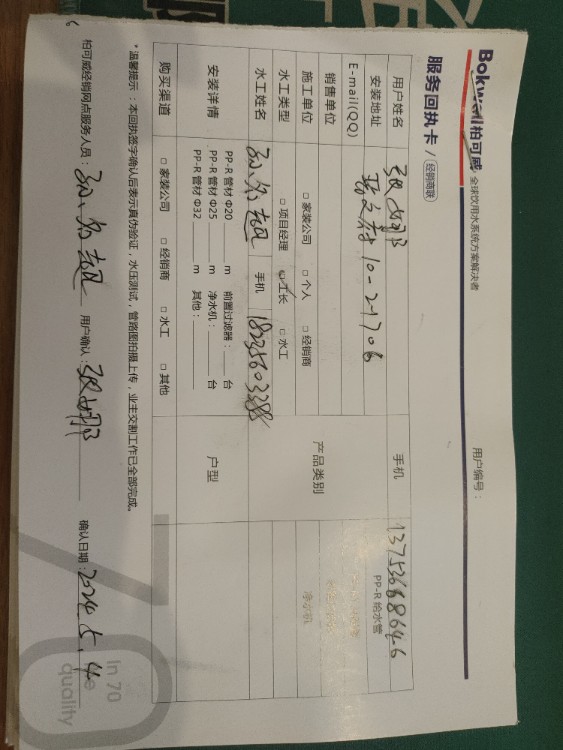 Bokweli柏可威 全球饮用水系统方案解决者
服务回执卡 / 经销商联
用户编号：
用户姓名
手机
安装地址 10-2-1706
PP-R 给水管
E-mail(QQ)
销售单位
产品类别
施工单位 □ 家装公司 □ 个人 □ 经销商
净水机
水工类型 □ 项目经理 □ 工长 □ 水工
水工姓名 手机 18235603288
安装详情
PP-R 管材 Φ20 m 前置过滤器： 台
PP-R 管材 Φ25 m 净水机： 台
PP-R 管材 Φ32 m 其他：
户型
购买渠道 □ 家装公司 □ 经销商 □ 水工 □ 其他
*温馨提示：本回执签字确认后表示真伪验证，水压测试，管路图拍摄上传，业主交割工作已全部完成。
柏可威经销网点服务人员： 用户确认： 确认日期：2024.5.4
In 70
quality